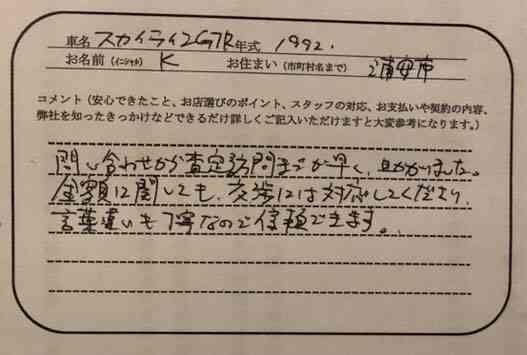 車名 スカイラインGTR 年式 1992.
お名前(イニシャル) K お住まい(市町村名まで) 浦安市
コメント(安心できたこと、お店選びのポイント、スタッフの対応、お支払いや契約の内容、
弊社を知ったきっかけなどできるだけ詳しくご記入いただけますと大変参考になります。)
問い合わせから査定訪問までが早く、助かりました。
金額に関しても、交渉には対応してくださり、
言葉遣いも丁寧なので信頼できます。